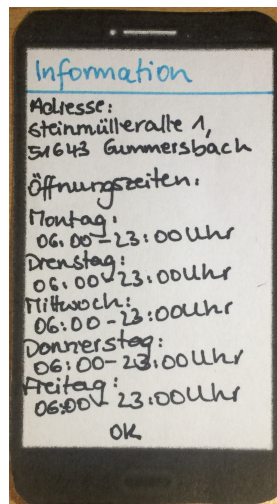 Information
Adresse:
Steinmülleralle 1,
51643 Gummersbach
Öffnungszeiten:
Montag:
06:00-23:00 Uhr
Dienstag:
06:00-23:00 Uhr
Mittwoch:
06:00-23:00 Uhr
Donnerstag:
06:00-23:00 Uhr
Freitag:
06:00-23:00 Uhr
OK